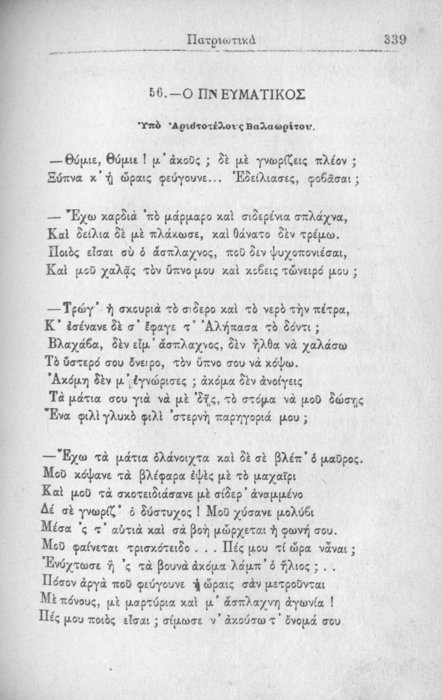 Πατριωτικὰ 339
56.—Ο ΠΝΕΥΜΑΤΙΚΟΣ
Ὑπὸ Ἀριστοτέλους Βαλαωρίτου.
—Θύμιε, Θύμιε ! μ' ἀκοῦς ; δὲ μὲ γνωρίζεις πλέον ;
Ξύπνα κ' ἡ ὥραις φεύγουνε... Ἐδείλιασες, φοβᾶσαι ;
— Ἔχω καρδιὰ 'πὸ μάρμαρο καὶ σιδερένια σπλάχνα,
Καὶ δείλια δὲ μὲ πλάκωσε, καὶ θάνατο δὲν τρέμω.
Ποιὸς εἶσαι σὺ ὁ ἄσπλαχνος, ποῦ δεν ψυχοπονιέσαι,
Καὶ μοῦ χαλᾷς τὸν ὕπνο μου καὶ κόβεις τὤνειρό μου ;
—Τρώγ' ἡ σκουριὰ τὸ σίδερο καὶ τὸ νερὸ τὴν πέτρα,
Κ' ἐσένανε δὲ σ' ἔφαγε τ' Ἀλήπασα τὸ δόντι ;
Βλαχάβα, δὲν εἶμ' ἄσπλαχνος, δὲν ἦλθα νὰ χαλάσω
Τὸ ὕστερό σου ὄνειρο, τὸν ὕπνο σου νὰ κόψω.
Ἀκόμη δὲν μ' ἐγνώρισες ; ἀκόμα δὲν ἀνοίγεις
Τὰ μάτια σου γιὰ νὰ μὲ ἰδῇς, τὸ στόμα νὰ μοῦ δώσῃς
Ἕνα φιλὶ γλυκὸ φιλὶ 'στερνὴ παρηγοριά μου ;
—Ἔχω τὰ μάτια ὁλάνοιχτα καὶ δὲ σὲ βλέπ' ὁ μαῦρος.
Μοῦ κόψανε τὰ βλέφαρα ἐψὲς μὲ τὸ μαχαῖρι
Καὶ μοῦ τὰ σκοτειδιάσανε μὲ σίδερ' ἀναμμένο
Δέ σὲ γνωρίζ' ὁ δύστυχος ! Μοῦ χύσανε μολύβι
Μέσα 'ς τ' αὐτιὰ καὶ σὰ βοὴ μὤρχεται ἡ φωνή σου.
Μοῦ φαίνεται τρισκότειδο . . . Πές μου τί ὥρα νἆναι ;
Ἐνύχτωσε ἢ 'ς τὰ βουνὰ ἀκόμα λάμπ' ὁ ἥλιος ; . .
Πόσον ἀργὰ ποῦ φεύγουνε ᾑ ὥραις σὰν μετροῦνται
Μὲ πόνους, μὲ μαρτύρια καὶ μ' ἄσπλαχνη ἀγωνία !
Πές μου ποιὸς εἶσαι ; σίμωσε ν' ἀκούσω τ' ὄνομά σου